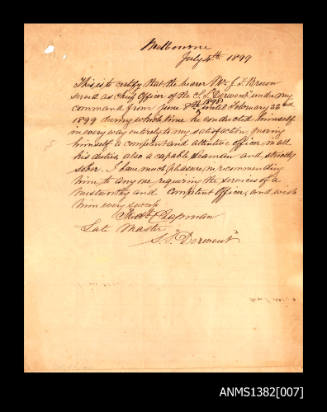 Melbourne
July 4th 1899
This is to certify that the bearer Mr J. F. Brown
served as Chief Officer of the S.S. "Derwent" under my
command from June 3rd 1898 until February 22nd
1899 during which time he conducted himself
in every way entirely to my satisfaction, proving
himself a competent and attentive officer in all
his duties, also a capable seaman and strictly
sober. I have much pleasure in recommending
him to any one requiring the services of a
trustworthy and competent Officer, and wish
him every success
Chapman
Late Master
S.S. "Derwent"
ANMS1382[007]